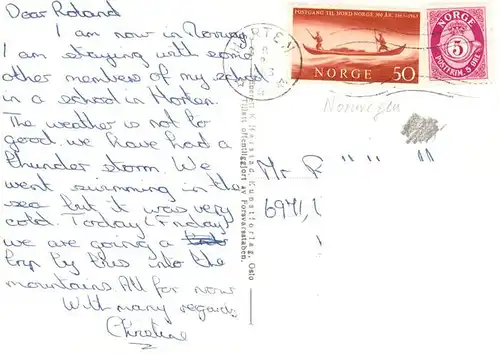 Dear Roland
I am now in Norway
I am staying with some
other members of my school
in a school in Horten.
The weather is not to
good. we have had a
thunder storm. We
went swimming in the
sea but it was very
cold. Today (Friday)
we are going a
trip by bus into the
mountains All for now
With many regards
Christine
POSTGANG TIL NORD-NORGE 300 ÅR. 1663-1963
NORGE 50
NORGE
5
POSTFRIM. 5 ØRE
HORTEN
Norwegen
Mr R " " "
6941,1
Kunstforlag, Oslo
Tillatt offentliggjort av Forsvarsstaben.